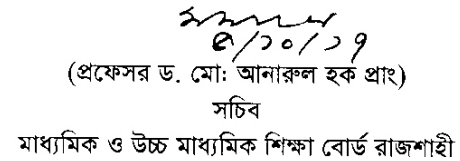 ৫/১০/১৭
(প্রফেসর ড. মো: আনারুল হক প্রাং)
সচিব
মাধ্যমিক ও উচ্চ মাধ্যমিক শিক্ষা বোর্ড রাজশাহী